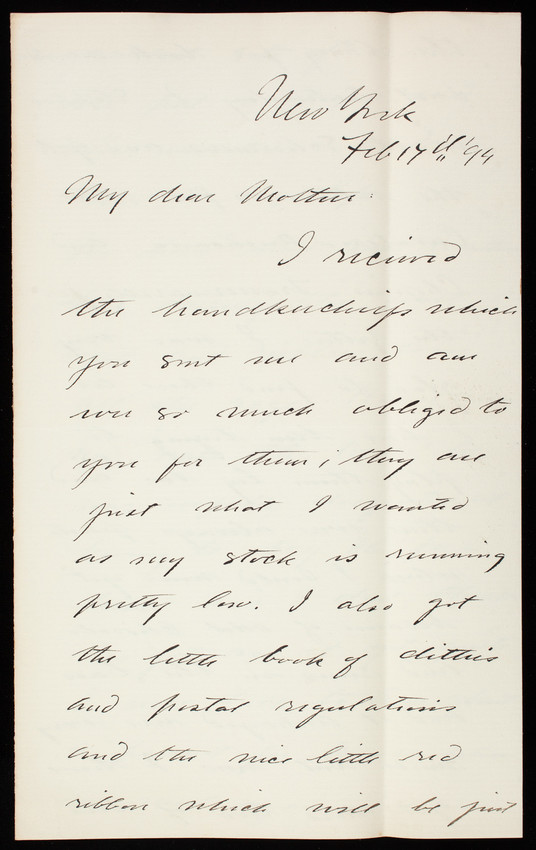 New York
Feb 17th '94
My dear Mother:
I recieved
the handkerchiefs which
you sent me and am
ever so much obliged to
you for them; they are
just what I wanted
as my stock is running
pretty low. I also got
the little book of
and postal regulations
and the nice little red
ribbon which will be just